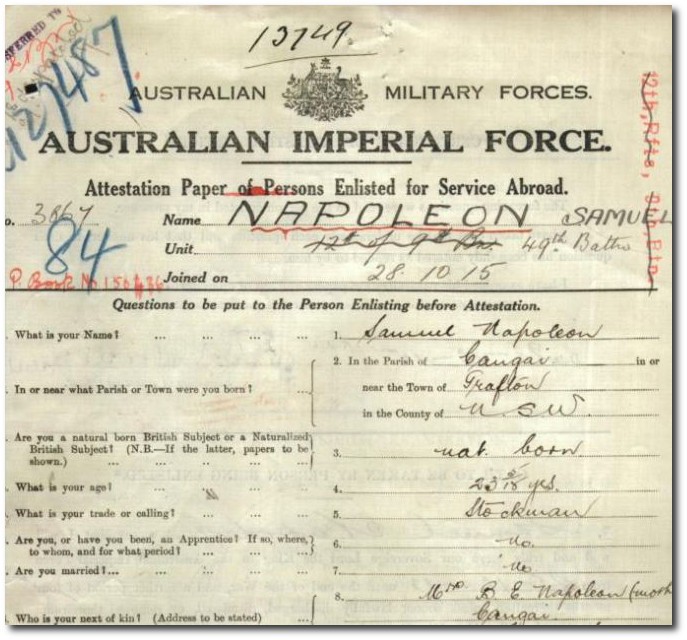 13749.
127487
AUSTRALIAN MILITARY FORCES.
AUSTRALIAN IMPERIAL FORCE.
Attestation Paper of Persons Enlisted for Service Abroad.
12th, Rfts, 9th, Btn
o. 3867 Name NAPOLEON SAMUEL
84 Unit 12th of 9th Bn. 49th Battn
Joined on 28.10.15
P. Book No
Questions to be put to the Person Enlisting before Attestation.
. What is your Name? ... ... ... ... 1. Samuel Napoleon
. In or near what Parish or Town were you born? ...
2. In the Parish of Cangai in or
near the Town of Grafton
in the County of N S W.
. Are you a natural born British Subject or a Naturalized
British Subject? (N.B.—If the latter, papers to be
shown.) ... ... ... ...
3. nat. born
. What is your age? ... ... ... ... 4. 23 5/12 yrs.
. What is your trade or calling? ... ... ... 5. Stockman
. Are you, or have you been, an Apprentice? If so, where,
to whom, and for what period? ... ... ...
6. no.
. Are you married?... ... ... ... ... 7. no.
. Who is your next of kin? (Address to be stated) ...
8. Mrs B. E. Napoleon (moth
Cangai